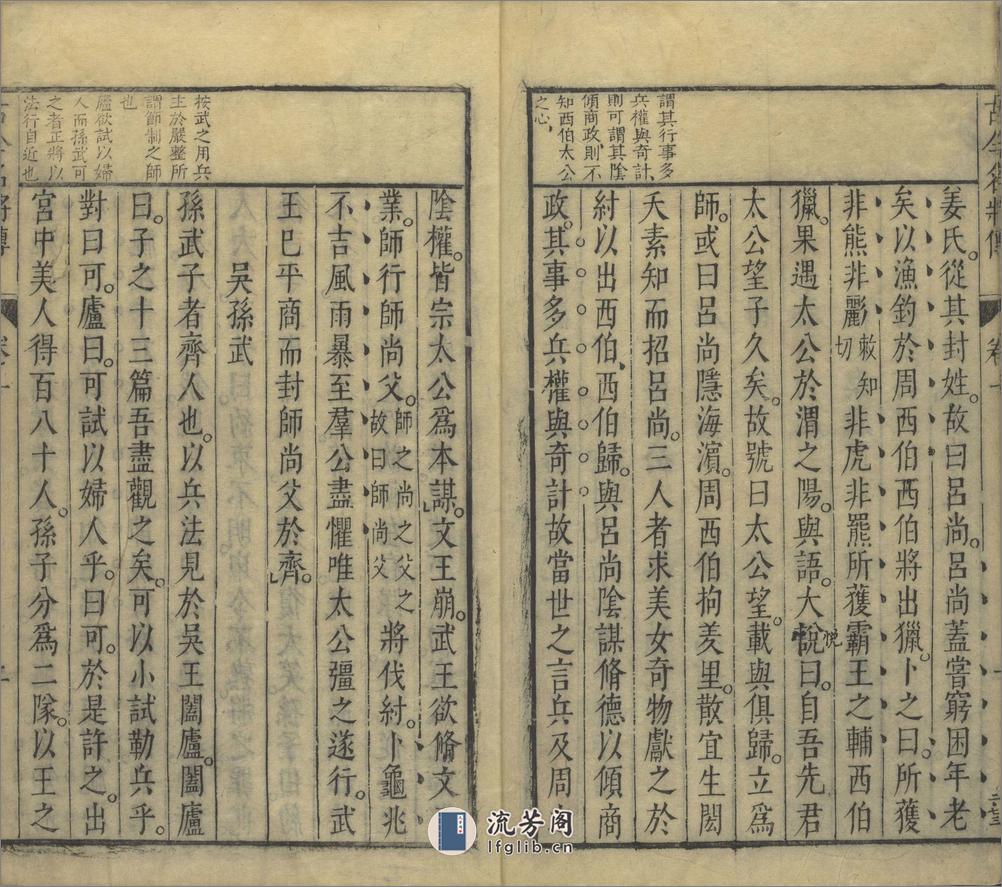 謂其行事多
兵權與奇計
則可謂其陰
傾商政則不
知西伯太公
之心
姜氏從其封姓故曰呂尚呂尚蓋嘗窮困年老
矣以漁釣於周西伯西伯將出獵卜之曰所獲
非熊非彲敕知切非虎非羆所獲霸王之輔西伯
獵果遇太公於渭之陽與語大悅曰自吾先君
太公望子久矣故號曰太公望載與俱歸立爲
師或曰呂尚隱海濵周西伯拘羑里散宜生閎
夭素知而招呂尚三人者求美女奇物獻之於
紂以出西伯西伯歸與呂尚陰謀脩德以傾商
政其事多兵權與奇計故當世之言兵及周之
按武之用兵
主於嚴整所
謂節制之師
也
廬欲試以婦
人而孫武可
之者正將以
法行自近也
陰權皆宗太公爲本謀文王崩武王欲脩文
業師行師尚父師之尚之父之故曰師尚父將伐紂卜龜兆
不吉風雨暴至羣公盡懼唯太公彊之遂行武
王已平商而封師尚父於齊
吳孫武
孫武子者齊人也以兵法見於吳王闔廬闔廬
曰子之十三篇吾盡觀之矣可以小試勒兵乎
對曰可廬曰可試以婦人乎曰可於是許之出
宮中美人得百八十人孫子分爲二隊以王之
流芳阁
lfglib.cn